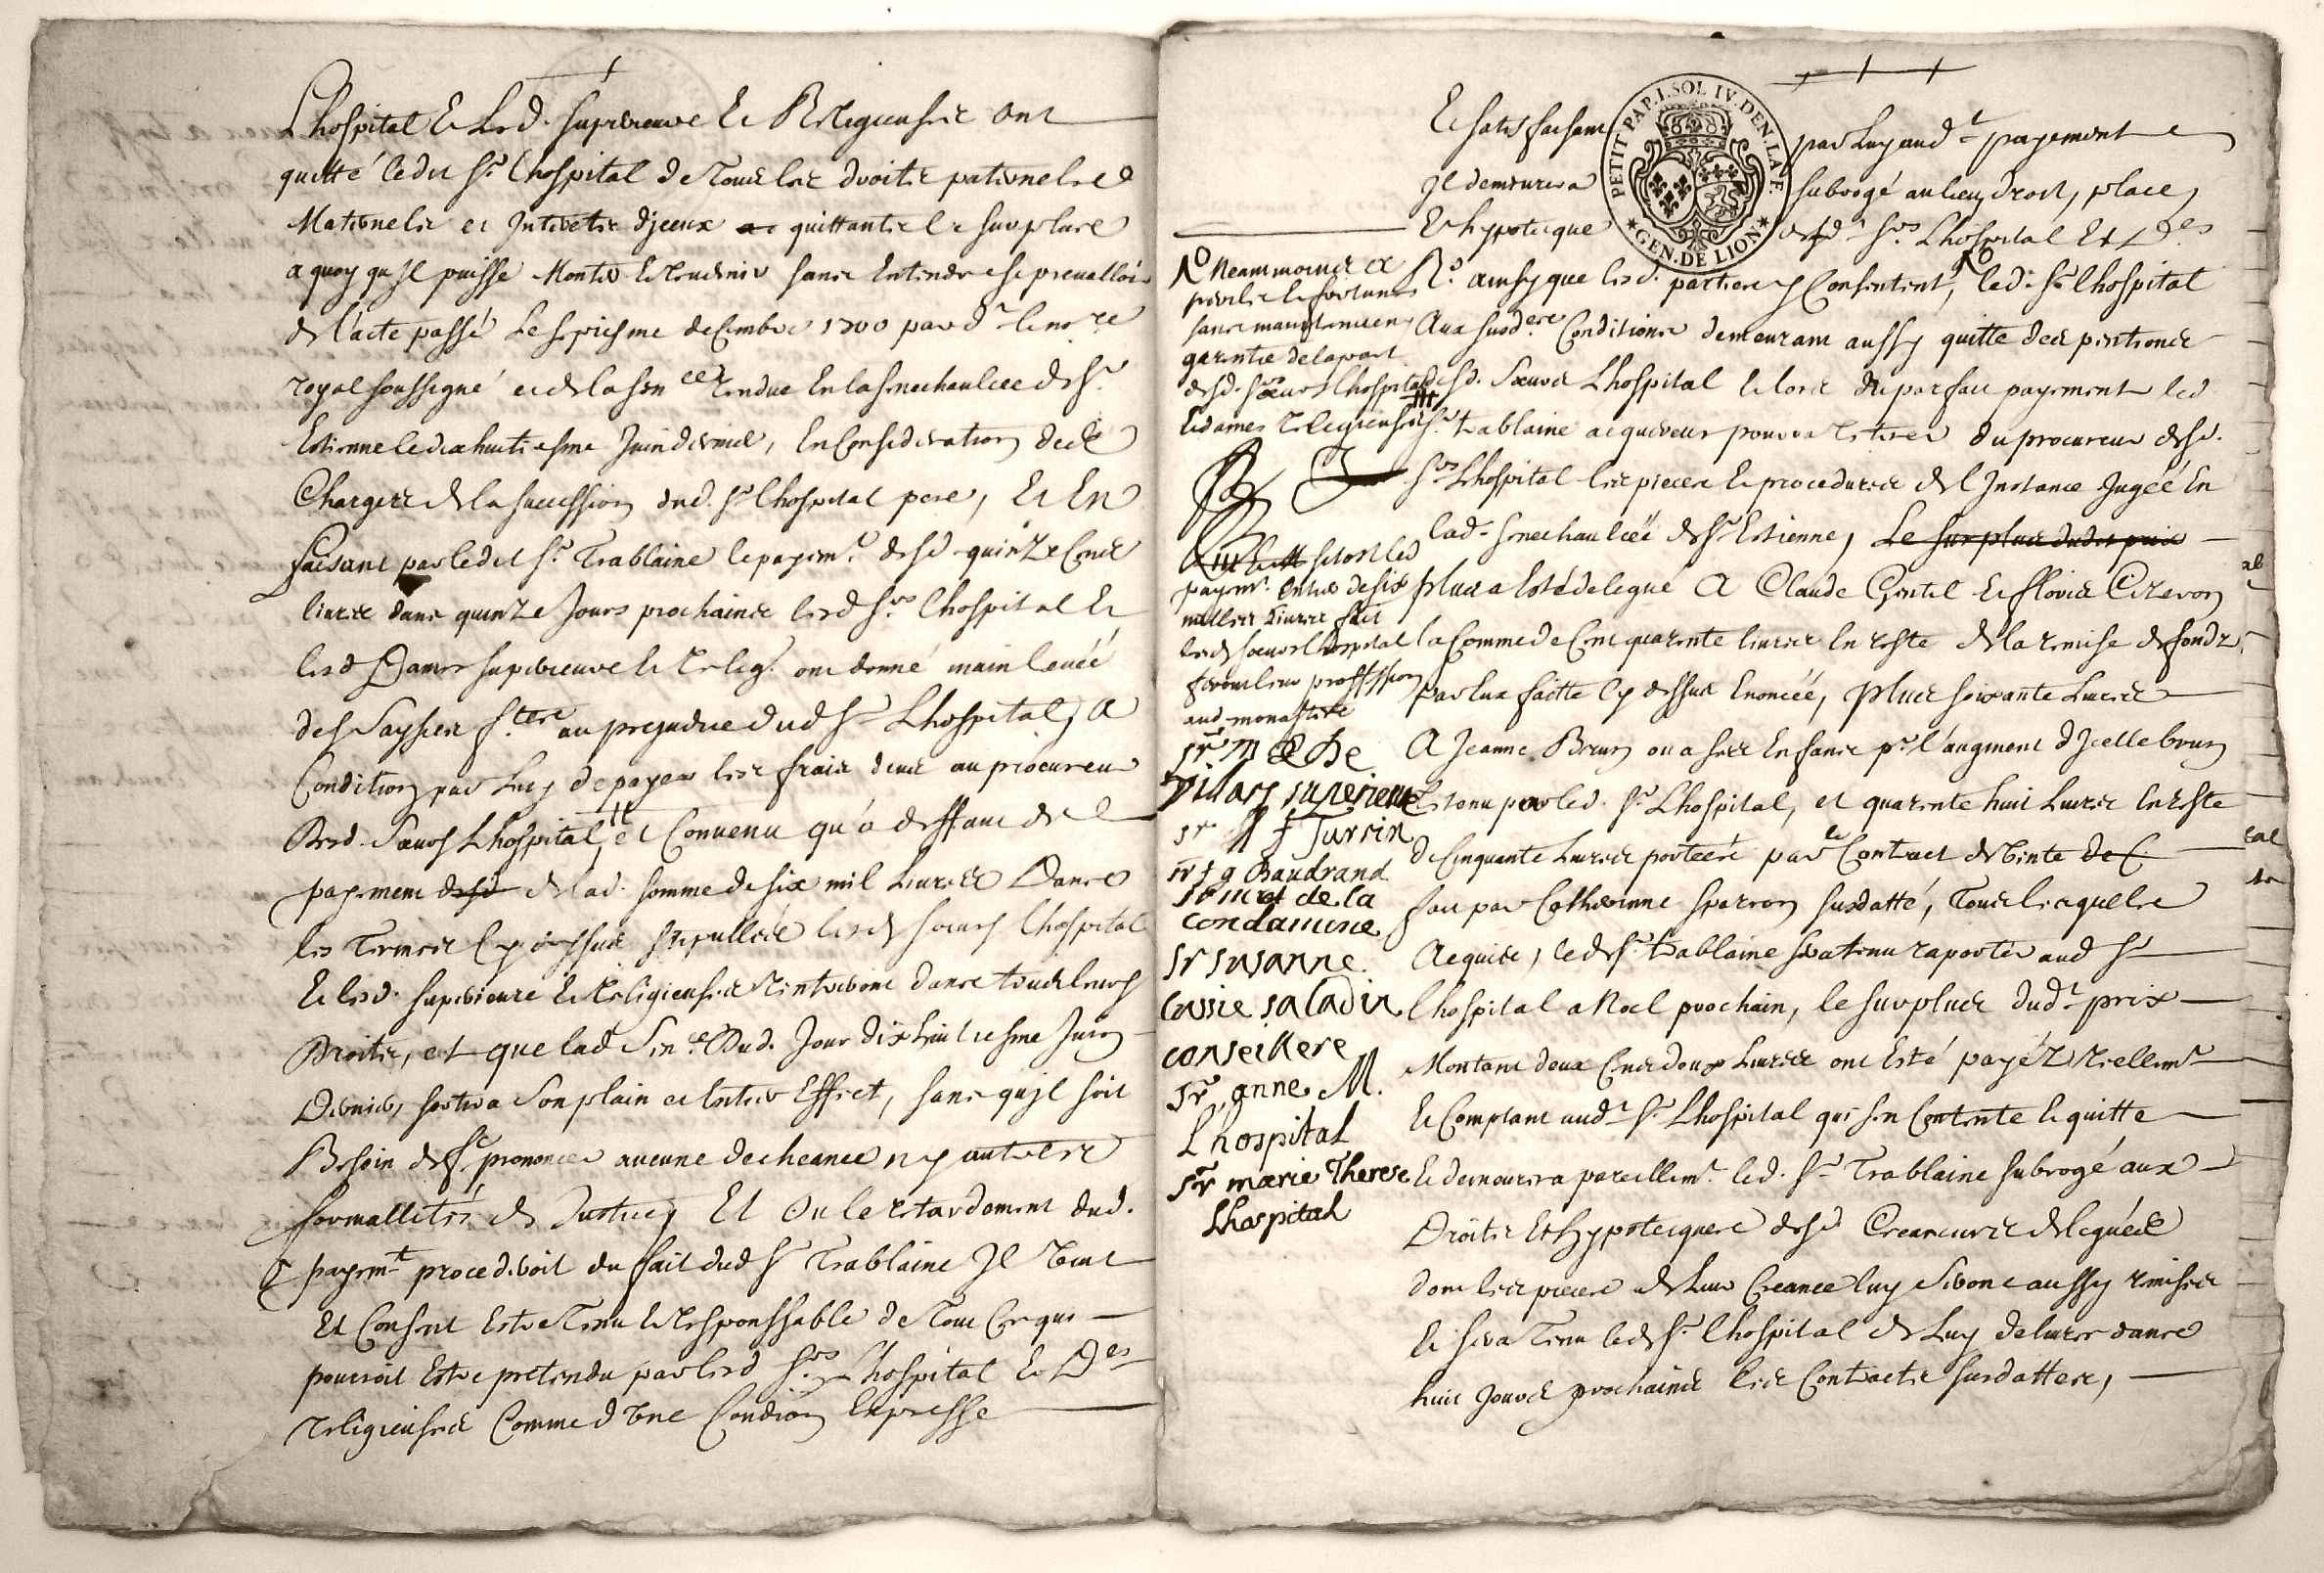 Lhospital & lesd. superieure & Religieuses ont
quitté ledit Sr. Lhospital de tous les droits paternels &
Maternels et Interets d'jceux quittants le surplus
a quoy qu'jl puisse Monter & reuenir sans Entendre se preualloir
de l'acte passé le septiesme decembre 1700 par dt. le nore
royal soussigné et de la sence rendue En la senechaulcée de St.
Estienne le dixhuitiesme Juin dernier, En Consideration des
Charges de la succession dud. Sr. lhospital pere, Et En
faisant par ledit Sr. Trablaine le payemt. desd quinze Cents
liures dans quinze Jours prochains lesd Srs lhospital &
lesd Dames superieure & relig. ont donné main leuée
des saysies fctes au prejudice dud Sr Lhospital, A
Condition par Luy de payer les frais deus au procureur
Desd. Sœurs Lhospital, et Conuenu qu'a deffaut de
payement desd de lad. somme de six mil Liures Dans
les Termes Cy dessus stipullés lesd sœurs lhospital
& lesd. superieure & Religieuses rentreront dans tous leurs
Droits, et que lad Sence Dud. Jour dixhuitiesme Juin
Dernier, sortira son plain et Entier Effet, sans qu'jl soit
Besoin de fe prononcer aucune decheance ny autres
formallités de Justice, Et Ou le retardement dud.
payemt procederoit du fait dud Sr Trablaine Jl Veut
Et Consent Estre Tenu & responssable de Tout Ce qui
pourroit Estre pretendu par lesd Srs Lhospital & Des
religieuses Comme d'Vne Condion Expresse
PETIT PAP. I. SOL IV. DEN. LA F.
GEN. DE LION
& satisfaisant par Luy aud t payement
Jl demeurera subrogé au lieu, droit, place,
& hypoteque desd Srs Lhospital & Des
Res. ainsy que lesd. parties y Consentent, led. Sr lhospital
Aux susdes Conditions demeurant aussy quitte des pentions
desd. Sœurs Lhospital & lors du parfait payement led
Sr. trablaine acquereur pourra retirer du procureur desd.
Srs Lhospital les pieces & procedures de l'Instance Jugée En
lad. senechaulcée de St. Estienne, Le surplus dudit prix
plus a Esté delegué A Claude Gentil & floris Crevon
la Somme de Cent quarente liures En reste de la remise de fonds
par Eux faitte Cy dessus Enoncée, plus soixante Liures
A Jeanne Brun ou a ses Enfans pr. l'augment d'Jcelle brun
Et tenu par led. Sr. Lhospital, et quarente huit Liures En reste
de Cinquante Liures portées par le Contract de Vente de C
fait par Catherinne sparron susdatté, Tous lesquels
Acquits, led Sr. trablaine sera tenu raporter aud Sr
lhospital a Noel prochain, le surplus dudt prix
Montant deux Cents douze Liures ont Esté payéz reellemt
& Comptant audt Sr. Lhospital qui s'en Contente & quitte
& demeurera pareillemt. led. Sr Trablaine subrogé aux
Droits Et hypoteques desd Creanciers delegués
dont les pieces de leur Creance luy seront aussy remises
& sera Tenu led Sr. lhospital de Luy deliurer dans
huit Jours prochains les Contracts susdattes,
Neanmoins a
perils & fortunes
sans maintenue ny
garentie de la part
desd. sœurs Lhospital
& dames religieuses
sitost led
payemt. Entier de six
milles Liures fait
lesd sœurs Lhospital
feront leur proffession
aud. monastere
sr m de Be
vilars superieure
sr f Turrin
sr f g Baudrand
sr de la
condamine
sr susanne
cassie saladin
conseillere
sr anne M.
Lhospital
sr marie Therese
Lhospital